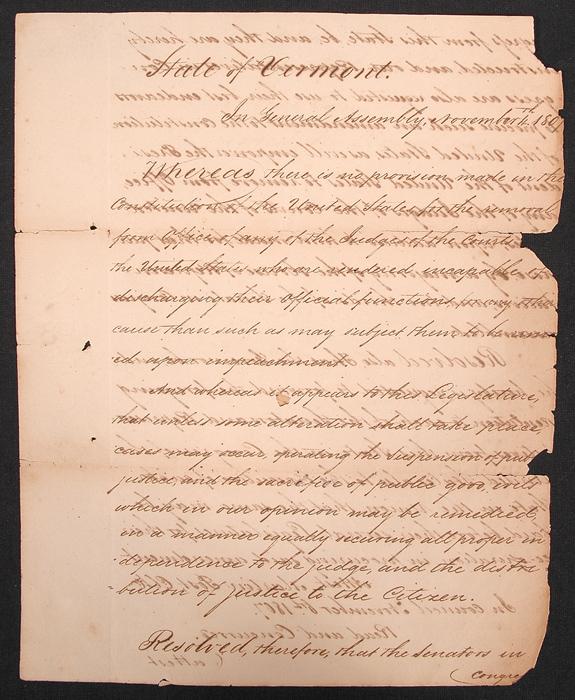 State of Vermont.
In General Assembly, November 4th, 1807
Whereas there is no provision made in the
Constitution of the United States for the removal
from Office of any of the Judges of the Courts
the United States who are rendered incapable of
discharging their Official functions for any othe
cause than such as may subject them to be
ed upon impeachment
And whereas it appears to this Legislature,
that unless some alteration shall take place,
cases may occur, operating the suspension of pub
justice, and the sacrifice of public good, evils
which in our opinion may be remedied
in a manner equally securing all proper in
dependence to the Judge, and the distri
bution of Justice to the Citizen.
Resolved, therefore, that the senators in
Congre